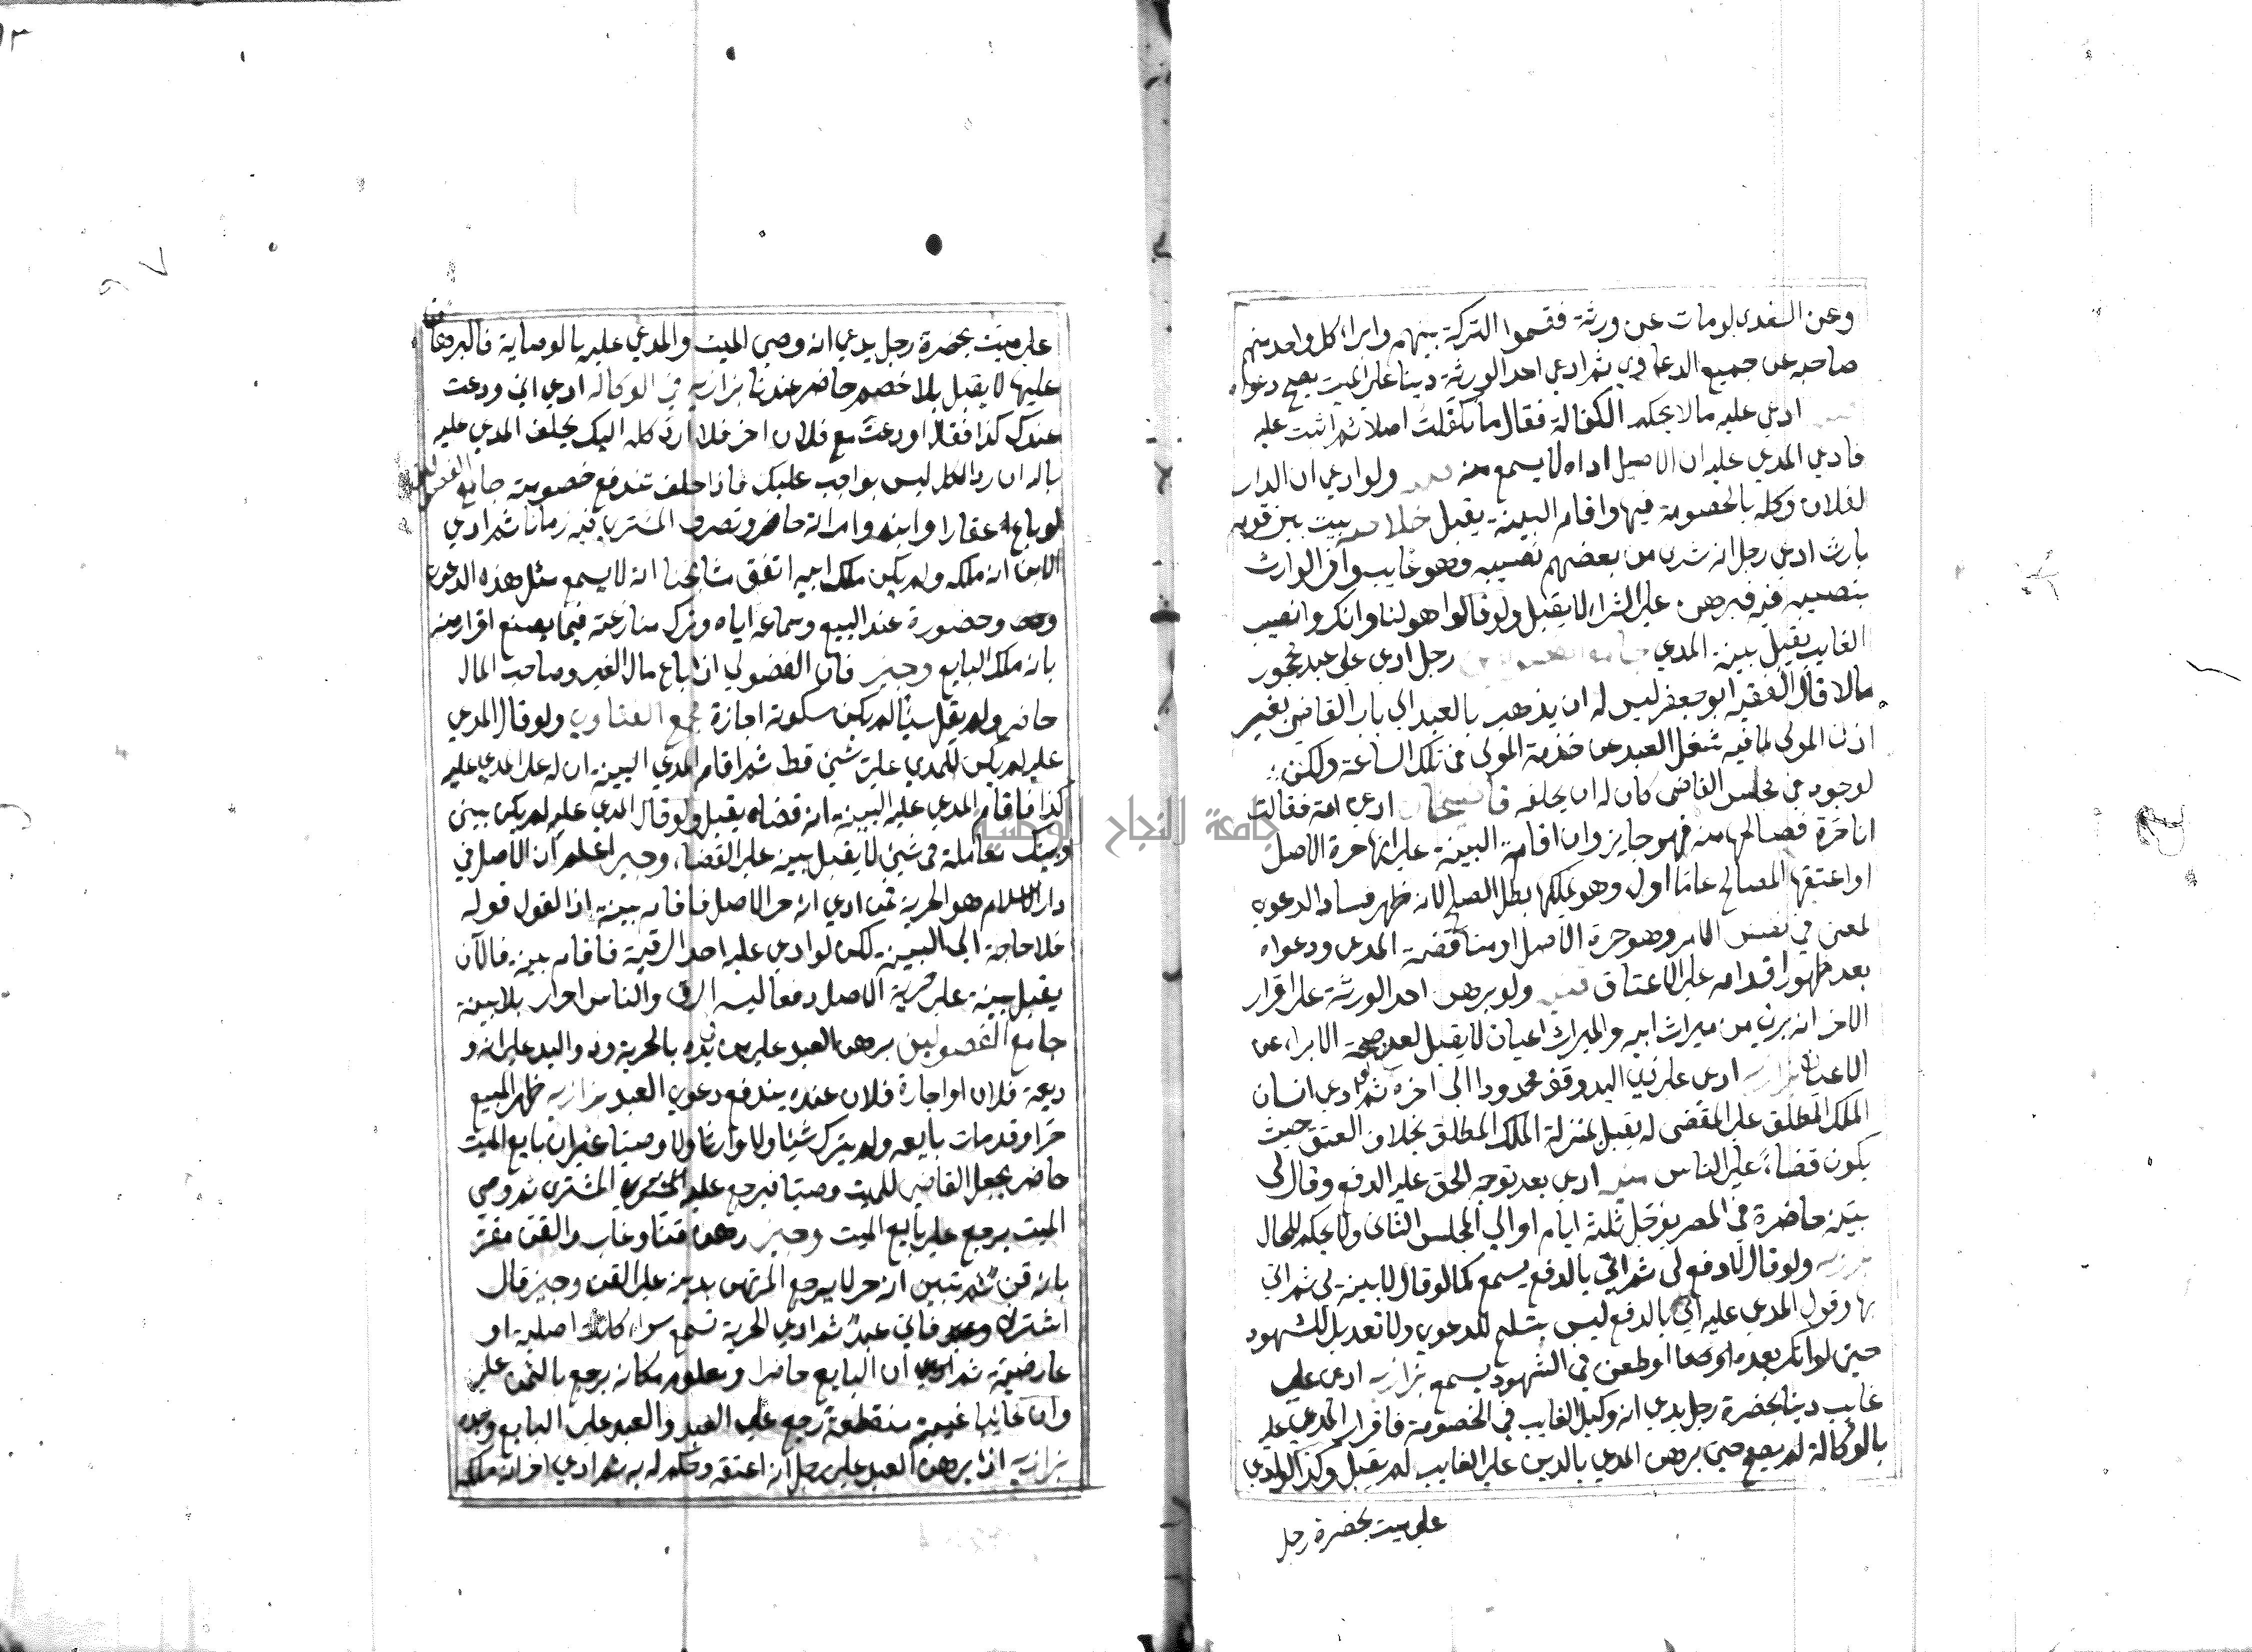 وعن السغدي لو مات عن ورثة فقسموا التركة بينهم وابرا كل واحد منهم
صاحبه عن جميع الدعاوي ثم ادعي احد الورثة دينا علي الميت يصح دعواه
ادعي عليه مالا بحكم الكفالة فقال ما تكفلت اصلا ثم اثبت عليه
فادعي المدعي عليه ان الاصيل اداه لا يسمع منه ولو ادعي ان الدار
لفلان وكله بالخصومة فيها واقام البينة يقبل خلاصه بيت بين قوم
بارث ادعي رجل انه شري من بعضهم نصيبه وهو غايب واقر الوارث
بنصيبه فيه فبرهن علي الشراء لا يقبل ولو قالوا هو لنا وانكروا نصيب
الغايب يقبل بينة المدعي رجل ادعي علي عبد محجور
مالا قال الفقيه ابو جعفر ليس له ان يذهب بالعبد الي باب القاضي بغير
اذن المولي لما فيه شغل العبد عن خدمة المولي في تلك الساعة ولكن
لو وجده في مجلس القاضي كان له ان يحلفه قاضيخان ادعي امة فقالت
انا حرة فصالحها منه فهو جايز وان اقامت البينة علي انها حرة الاصل
او اعتقها المصالح عاما اول وهو يملكها بطل الصلح لانه ظهر فساد الدعوي
لمعني في نفس الامر وهو حرة الاصل او مناقضة المدعي ودعواه
بعد ظهور اقدامه علي الاعتاق قنيه ولو برهن احد الورثة علي اقرار
الاخر انه بري من ميراث ابيه والميراث اعيان لا يقبل لعدم صحة الابراء عن
الاعيان بزازيه ادعي علي ذي اليد وقفا محدودا الي اخره ثم ادعي انسان
الملك المطلق علي المقضي له يقبل بمنزلة الملك المطلق بخلاف العتق حيث
يكون قضاء علي الناس منيه ادعي بعد توجه الحق عليه الدفع وقال لي
بينة حاضرة في المصر يؤجل ثلثة ايام او الي المجلس الثاني ولا يحكم للحال
بزازيه ولو قال لا دفع لي ثم اتي بالدفع يسمع كما لو قال لا بينة لي ثم اتي
بها وقول المدعي عليه اتي بالدفع ليس بتسليم للدعوي ولا تعديل للشهود
حتي لو انكر بعده او طعن في الشهود يسمع بزازيه ادعي علي
غايب دينا بحضرة رجل يدعي انه وكيل الغايب في الخصومة فاقر المدعي عليه
بالوكالة لم يصح حتي برهن المدعي بالدين علي الغايب لم يقبل وكذا لو ادعي
علي ميت بحضرة رجل
علي ميت بحضرة رجل يدعي انه وصي الميت والمدعي عليه بالوصاية فالبرهان
عليها لا يقبل بلا خصم حاضر عندنا بزازيه في الوكالة ادعي اني ودعت
عندك كذا فقال اودعت مع فلان اخر فلا ارد كله اليك يحلف المدعي عليه
بالله ان رد الكل ليس بواجب عليك فاذا حلف تندفع خصومته جامع الفصولين
لو باع عقارا وابنه وامراته حاضر وتصرف المشتري فيه زمانا ثم ادعي
الابن انه ملكه ولم يكن ملك ابيه اتفق مشايخنا انه لا يسمع مثل هذه الدعوي
وحضوره عند البيع وسماعه اياه وترك منازعته فيما يصنع اقرار منه
بانه ملك البايع وجيز فان الفضولي اذا باع مال الغير وصاحب المال
حاضر ولم يقل شيئا لم يكن سكوته اجازة مجمع الفتاوي ولو قال المدعي
عليه لم يكن للمدعي علي شي قط ثم اقام المدعي البينة ان له علي المدعي عليه
كذا فاقام المدعي عليه البينة انه قضاه يقبل ولو قال المدعي عليه لم يكن بيني
وبينك معاملة في شي لا يقبل بينة علي القضاء وجيز اعلم ان الاصل في
دار الاسلام هو الحرية فمن ادعي انه حر الاصل فاقام بينة اذ القول قوله
فلا حاجة الي البينة لكن لو ادعي عليه احد الرقية فاقام بينة فالآن
يقبل بينة علي حرية الاصل دفعا لبينة الرق والناس احرار بلا بينة
جامع الفصولين برهن العبد علي من في يده بالحرية وذو اليد علي انه و
ديعة فلان او اجارة فلان عنده يندفع دعوي العبد بزازيه ظهر المبيع
حرا وقد مات بايعه ولم يترك شيئا ولا وارثا ولا وصيا غير ان بايع الميت
حاضر يجعل القاضي للميت وصيا فيرجع عليه المشتري ثم وصي
الميت يرجع علي بايع الميت وجيز رهن قنا وغاب والقن مقر
بانه قن ثم تبين انه حر لا يرجع المرتهن بدينه علي القن وجيز قال
اشترني فاني عبد ثم ادعي الحرية تسمع سواء كانت اصلية او
عارضية ثم ان البايع حاضرا ومعلوم مكانه يرجع بالثمن عليه
وان غائبا غيبة منقطعة رجع علي العبد والعبد علي البايع
بزازيه اذا برهن العبد علي رجل انه اعتقه وحكم له به ثم ادعي اخر انه ملكه
جامعة النجاح الوطنية